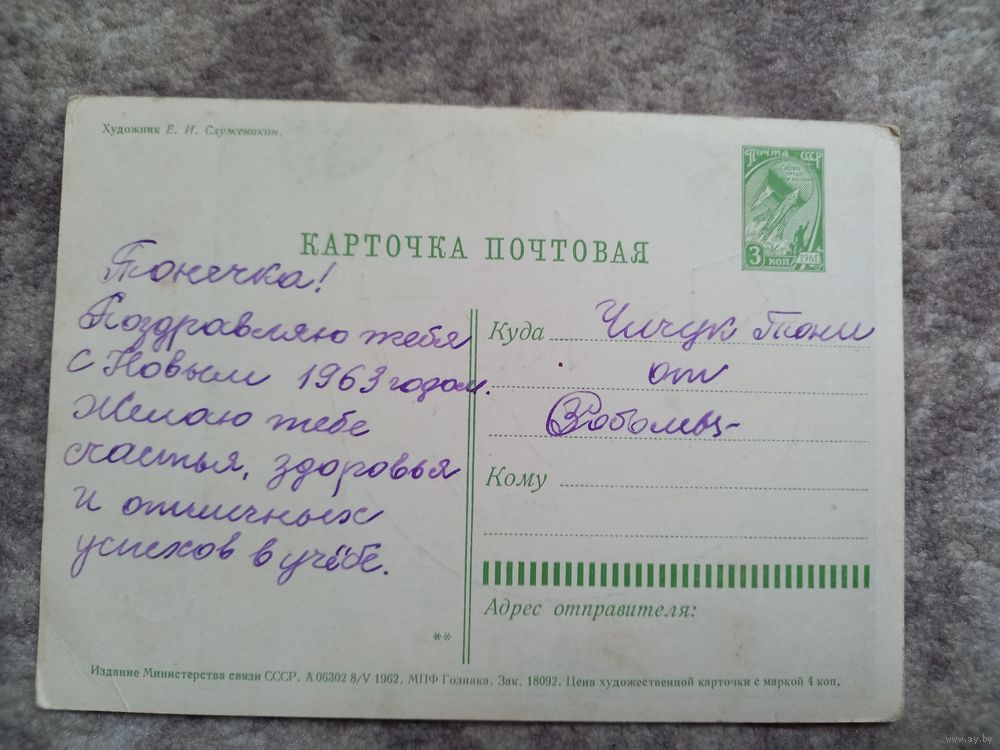 Художник Е. И. Служеникин.
ПОЧТА СССР
3 КОП
1961
КАРТОЧКА ПОЧТОВАЯ
Тонечка!
Поздравляю тебя
с Новым 1963 годом.
Желаю тебе
счастья, здоровья
и отличных
успехов в учёбе.
**
Куда Чичук Тони
от
Кому
Адрес отправителя:
Издание Министерства связи СССР. А 06302 8/V 1962. МПФ Гознака. Зак. 18092. Цена художественной карточки с маркой 4 коп.
www.ay.by